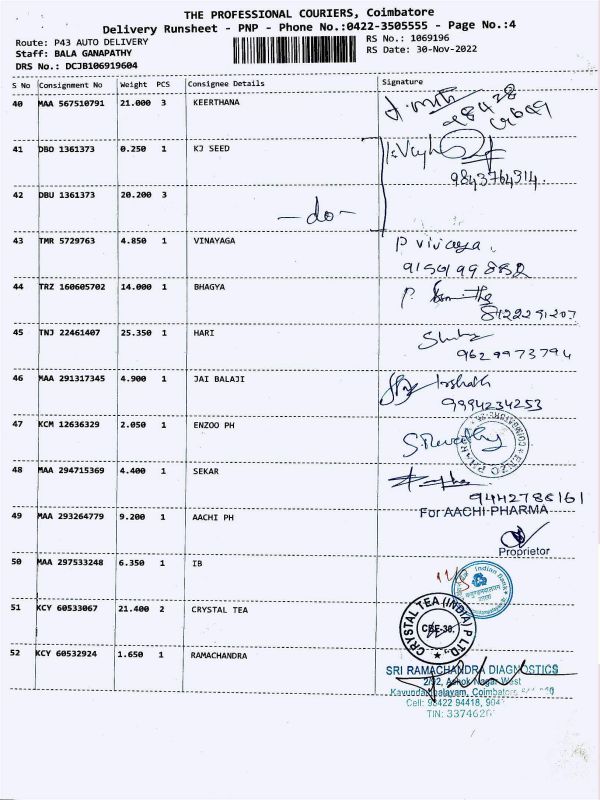 THE PROFESSIONAL COURIERS, Coimbatore
Delivery Runsheet - PNP - Phone No.:0422-3505555 - Page No.:4
Route: P43 AUTO DELIVERY
RS No.: 1069196
Staff: BALA GANAPATHY
RS Date: 30-Nov-2022
DRS No.: DCJB106919604
S No Consignment No Weight PCS Consignee Details Signature
40 MAA 567510791 21.000 3 KEERTHANA
41 DBO 1361373 0.250 1 KJ SEED
9843764314.
42 DBU 1361373 20.200 3
-do-
43 TMR 5729763 4.850 1 VINAYAGA P vivaya.
44 TRZ 160605702 14.000 1 BHAGYA
8122291207
45 TNJ 22461407 25.350 1 HARI
9629973794
46 MAA 291317345 4.900 1 JAI BALAJI
9994234253
47 KCM 12636329 2.050 1 ENZOO PH S.Revathy
48 MAA 294715369 4.400 1 SEKAR
9442788161
49 MAA 293264779 9.200 1 AACHI PH For AACHI PHARMA
Proprietor
50 MAA 297533248 6.350 1 IB Indian Bank
51 KCY 60533067 21.400 2 CRYSTAL TEA CRYSTAL TEA (INDIA) P LTD.,
CBE-30.
52 KCY 60532924 1.650 1 RAMACHANDRA
SRI RAMACHANDRA DIAGNOSTICS
2/92, Ashok Nagar West
Kavundampalayam, Coimbatore
Cell: 98422 94418, 904
TIN: 3374626